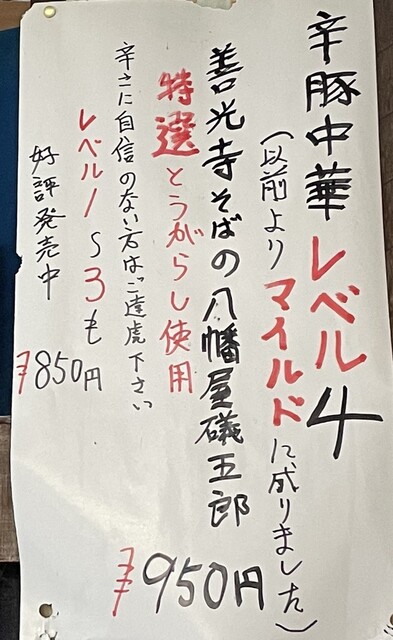 辛豚中華レベル4
(以前よりマイルドに成りました)
善光寺そばの八幡屋礒五郎
特選とうがらし使用
¥950円
辛さに自信のない方はご遠慮下さい
レベル1~3も
好評発売中
¥850円